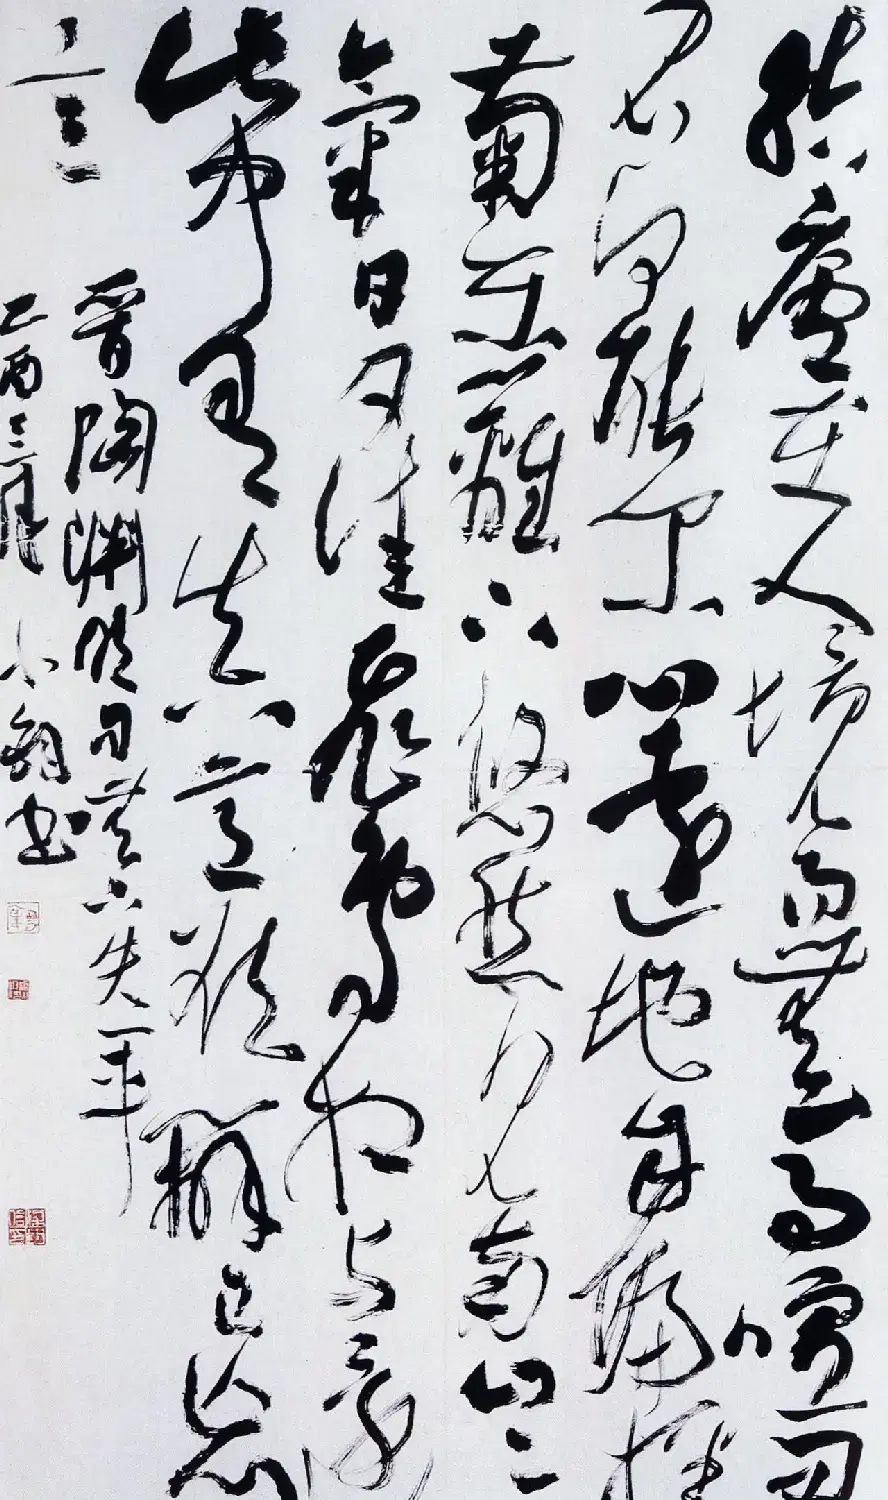 結廬在人境而無馬喧問
君何能爾心遠地自偏採
菊東籬下悠然見南山〻
氣日夕佳飛鳥相与還
此中有真意欲辨已忘
言
晉陶淵明句無下失一車
乙酉三月 書